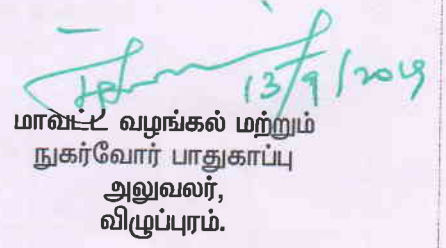 13/9/2019
மாவட்ட வழங்கல் மற்றும்
நுகர்வோர் பாதுகாப்பு
அலுவலர்,
விழுப்புரம்.